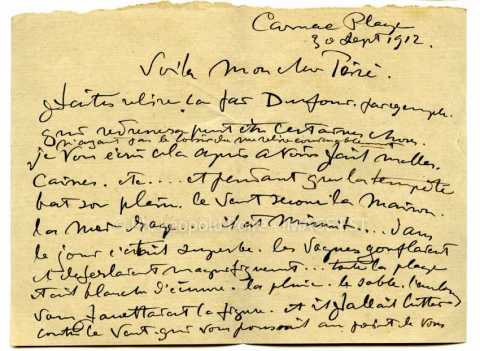 Carnac Plage
30 Sept 1912.
Voilà mon cher
faites relire ça par Dufour, par exemple.
qui redressera peut être certaines choses
n'ayant pas le loisir de me relire
je vous écris cela après avoir fait malles
caisses, etc.... et pendant que la tempête
bat son plein. le vent secoue la maison.
la mer rage ... il est minuit.... dans
le jour c'était superbe. les vagues gonflaient
et déferlaient magnifiquement... toute la plage
était blanche d'écume. la pluie. le sable.
vous fouettaient la figure. et il fallait lutter
contre le vent. qui vous poussait au point de vous